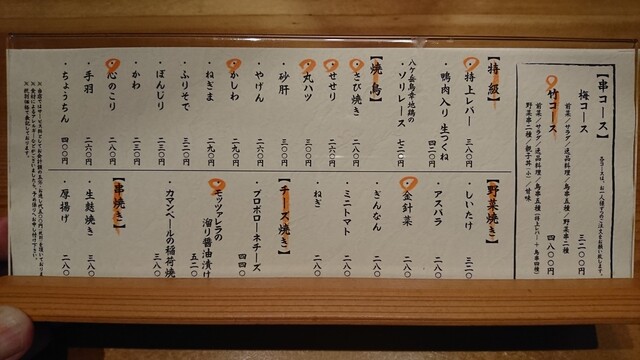 【串コース】
各コースは、お一人様づつのご注文をお願い致します。
梅コース 三二〇〇円
前菜／サラダ／逸品料理／鳥串五種／野菜串二種
竹コース 四八〇〇円
前菜／サラダ／逸品料理／鳥串五種(特上レバー＋鳥串四種)
野菜串二種／親子丼(小)／甘味
【特級】
・特上レバー 三八〇円
・鴨肉入り 生つくね 四二〇円
八ケ岳鳥幸地鶏の
・ソリレース 七三〇円
【焼鳥】
・さび焼き 二八〇円
・せせり 二八〇円
・丸ハツ 三〇〇円
・砂肝 三〇〇円
・やげん 二六〇円
・かしわ 二九〇円
・ねぎま 二九〇円
・ふりそで 三二〇円
・ぼんじり 二三〇円
・かわ 二三〇円
・心のこり 二六〇円
・手羽 二六〇円
・ちょうちん 四〇〇円
【野菜焼き】
・しいたけ 三二〇
・アスパラ 二八〇
・金針菜 二八〇
・ぎんなん 二八〇
・ミニトマト 二八〇
・ねぎ 二八〇
【チーズ焼き】
・プロボローネチーズ 四四〇
・モッツァレラの
溜り醤油漬け 五二〇
・カマンベールの稲荷焼 三八〇
【串焼き】
・生麩焼き 三八〇
・厚揚げ 二八〇